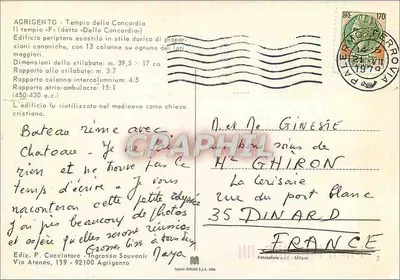 AGRIGENTO - Tempio della Concordia
Il tempio «F» (detto «Della Concordia»)
Edificio periptero esastilo in stile dorico di propor-
zioni canoniche, con 13 colonne su ognuno dei lati
maggiori.
Dimensioni dello stilobate: m. 39,5 × 17 ca
Rapporto allo stilobate: m. 3:7
Rapporto colonna-intercolumnium: 4:5
Rapporto atrio-ambulacro: 15:1
(450-430 a.c.)
L'edificio fu riutilizzato nel medioevo come chiesa
cristiana.
Bateau rime avec
Chateau - Je ne fais
rien et ne trouve pas le
temps d'écrire - Je vous
raconterai cette petite odyssée
j'ai pris beaucoup de photos
et espère qu'elles seront réussies
Grosses bises à tous deux
Maya
Ediz. P. Cacciatore - Ingrosso Souvenir
Via Atenea, 139 - 92100 Agrigento
LIRE 170
PALERMO FERROVIA
1976
M. et Me GINESTE
aux bons soins de
Me GHIRON
La Cerisaie
rue du port blanc
35 DINARD
FRANCE
Milano
PHILATELIE